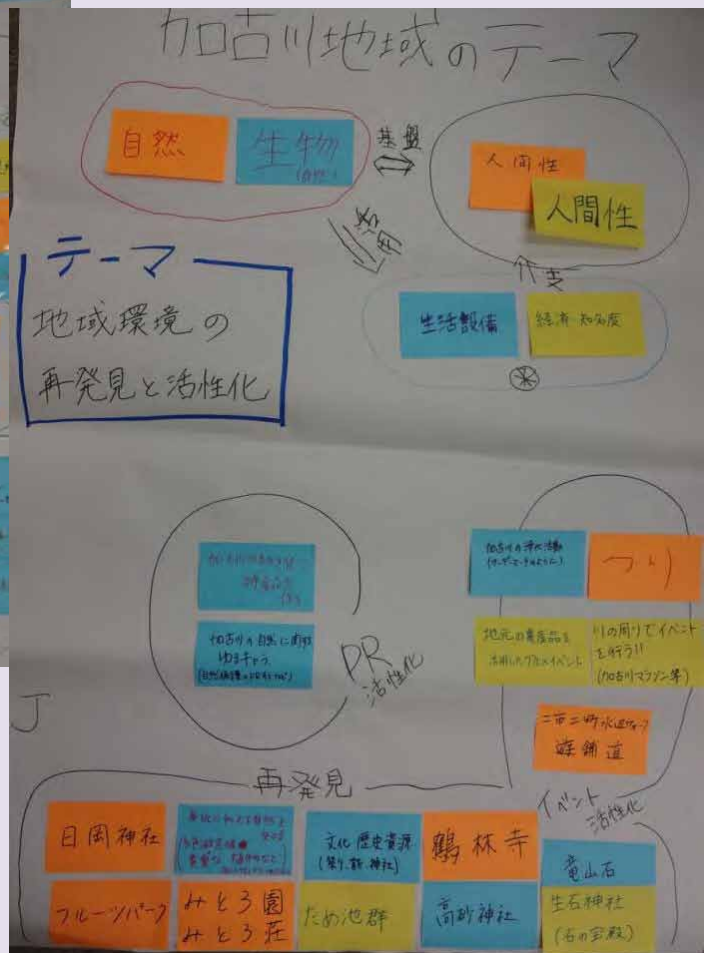 加古川地域のテーマ
自然
生物
(自然)
基盤
人間性
人間性
活用
テーマ
地域環境の
再発見と活性化
生活設備
経済・知名度
加古川の自然に関する
ゆるキャラ
PR
活性化
加古川の浄化活動
つり
地元の農産品を
活用したグルメイベント
川の周りでイベント
を行う!!
(加古川マラソン等)
遊舗道
イベント
活性化
再発見
日岡神社
文化 歴史資源
鶴林寺
竜山石
フルーツパーク
みとろ園
みとろ荘
ため池群
高砂神社
生石神社
(石の宝殿)